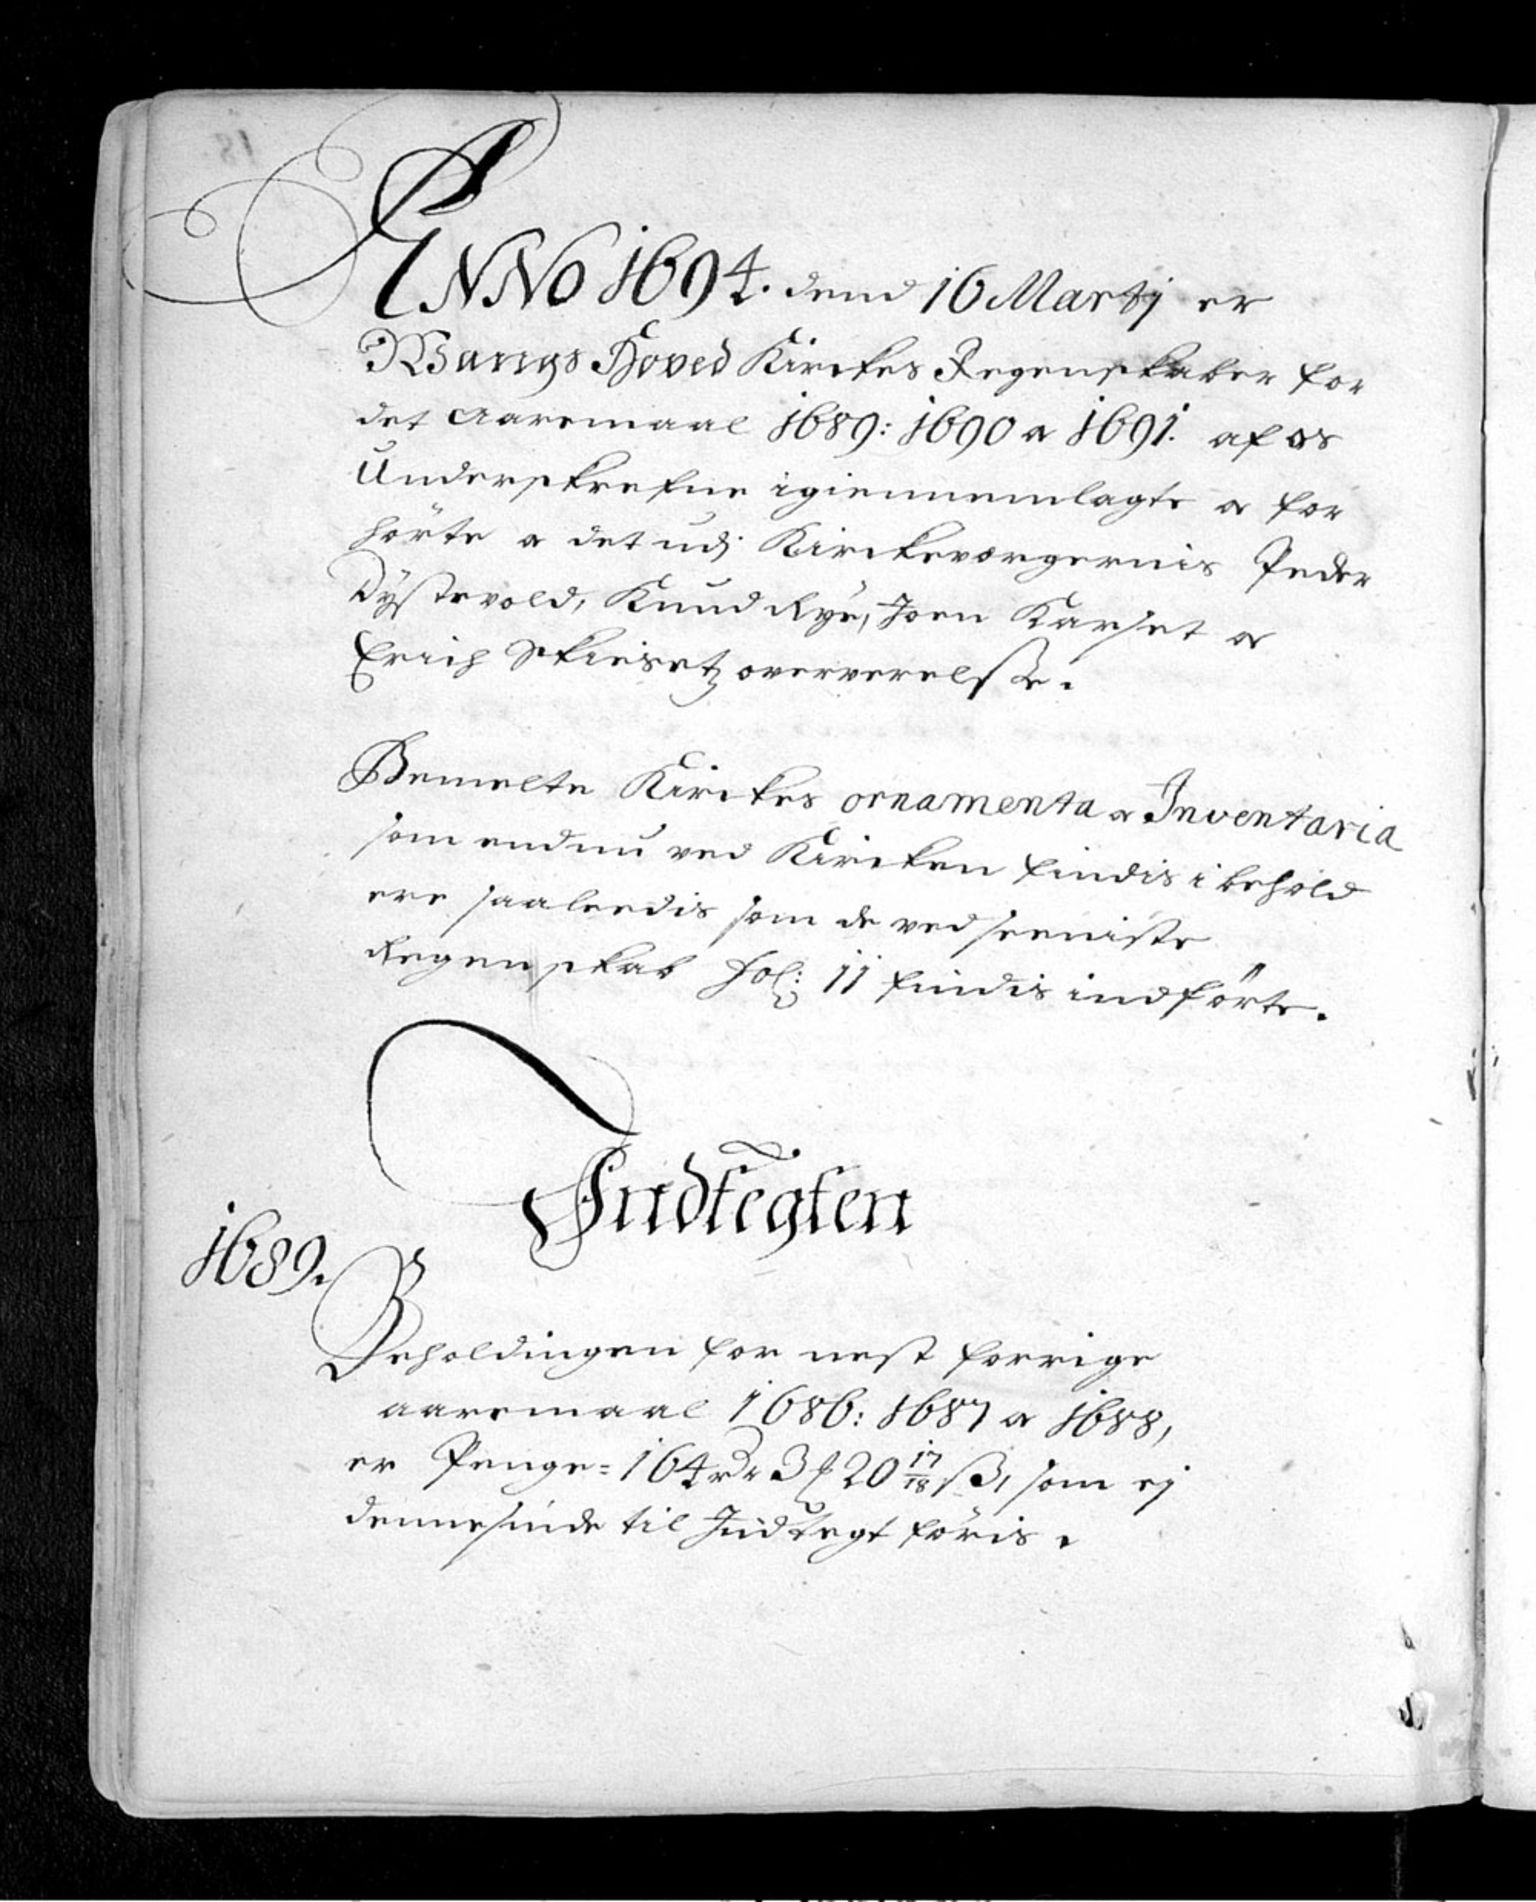 ANNO 1694. dend 16 Martij er
Wangs Hoved Kirckes Regenskaber for
det Aaremaal 1689: 1690 og 1691. af os
Underskrefne igiennemlagte og for
hörte og det udj Kirckevergernis Peder
Dÿstevold, Knud Rÿe, Joen Karset og
Erich Skieset oververelsse.
Bemelte Kirckes ornamenta og Inventaria
som endnu ved Kircken findis i behold
ere saaleedis som de ved seeniste
Regenskab fol: 11 findis indförte.
Indtegten
1689.
Beholdingen for nest forrige
aaremaal 1686: 1687 og 1688,
er Penge = 164 rdr 3 ʒ 20 17/18 ß, som ej
dennesinde til Indtegt föris.